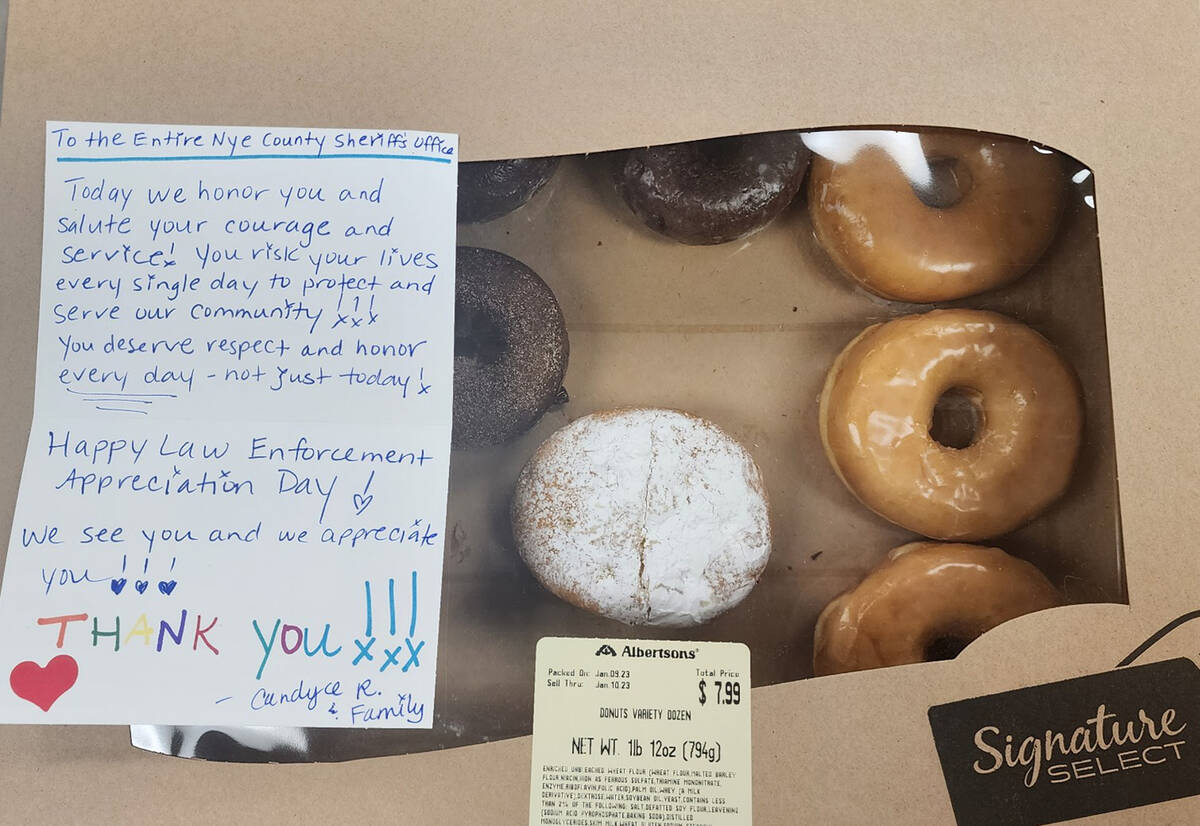 To the Entire Nye County Sheriff's Office
Today we honor you and
salute your courage and
service! You risk your lives
every single day to protect and
serve our community!!!
You deserve respect and honor
every day - not just today!
Happy Law Enforcement
Appreciation Day!
We see you and we appreciate
you!!!
THANK YOU!!!
- Candyce R.
& Family
Albertsons
Packed On: Jan.09.23
Total Price
Sell Thru: Jan.10.23
$ 7.99
DONUTS VARIETY DOZEN
NET WT. 1lb 12oz (794g)
ENRICHED UNBLEACHED WHEAT FLOUR (WHEAT FLOUR,MALTED BARLEY
FLOUR,NIACIN,IRON AS FERROUS SULFATE,THIAMINE MONONITRATE,
ENZYME,RIBOFLAVIN,FOLIC ACID),PALM OIL,WHEY (A MILK
DERIVATIVE),DEXTROSE,WATER,SOYBEAN OIL,YEAST,CONTAINS LESS
THAN 2% OF THE FOLLOWING: SALT,DEFATTED SOY FLOUR,LEAVENING
(SODIUM ACID PYROPHOSPHATE,BAKING SODA),DISTILLED
MONOGLYCERIDES,SKIM MILK,WHEAT GLUTEN,SODIUM
Signature
SELECT